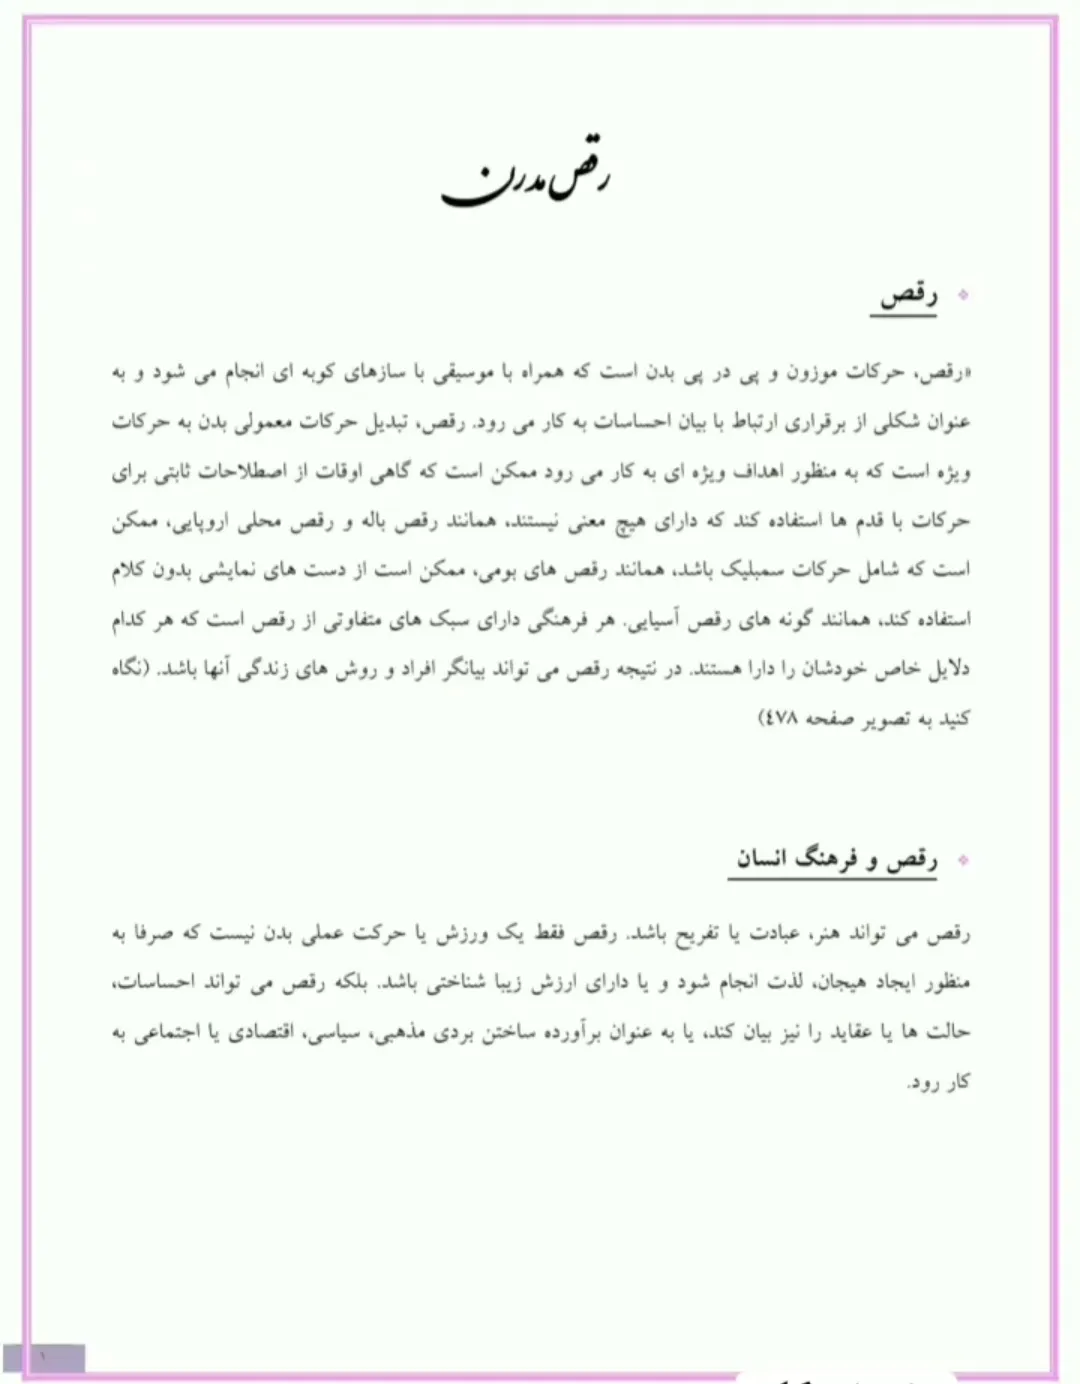 رقص مدرن
رقص
«رقص، حرکات موزون و پی در پی بدن است که همراه با موسیقی با سازهای کوبه ای انجام می شود و به
عنوان شکلی از برقراری ارتباط با بیان احساسات به کار می رود. رقص، تبدیل حرکات معمولی بدن به حرکات
ویژه است که به منظور اهداف ویژه ای به کار می رود ممکن است که گاهی اوقات از اصطلاحات ثابتی برای
حرکات با قدم ها استفاده کند که دارای هیچ معنی نیستند، همانند رقص باله و رقص محلی اروپایی، ممکن
است که شامل حرکات سمبلیک باشد، همانند رقص های بومی، ممکن است از دست های نمایشی بدون کلام
استفاده کند، همانند گونه های رقص آسیایی. هر فرهنگی دارای سبک های متفاوتی از رقص است که هر کدام
دلایل خاص خودشان را دارا هستند. در نتیجه رقص می تواند بیانگر افراد و روش های زندگی آنها باشد. (نگاه
کنید به تصویر صفحه ٤٧٨)
رقص و فرهنگ انسان
رقص می تواند هنر، عبادت یا تفریح باشد. رقص فقط یک ورزش یا حرکت عملی بدن نیست که صرفا به
منظور ایجاد هیجان، لذت انجام شود و یا دارای ارزش زیبا شناختی باشد. بلکه رقص می تواند احساسات،
حالت ها یا عقاید را نیز بیان کند، یا به عنوان برآورده ساختن بردی مذهبی، سیاسی، اقتصادی یا اجتماعی به
کار رود.
۱